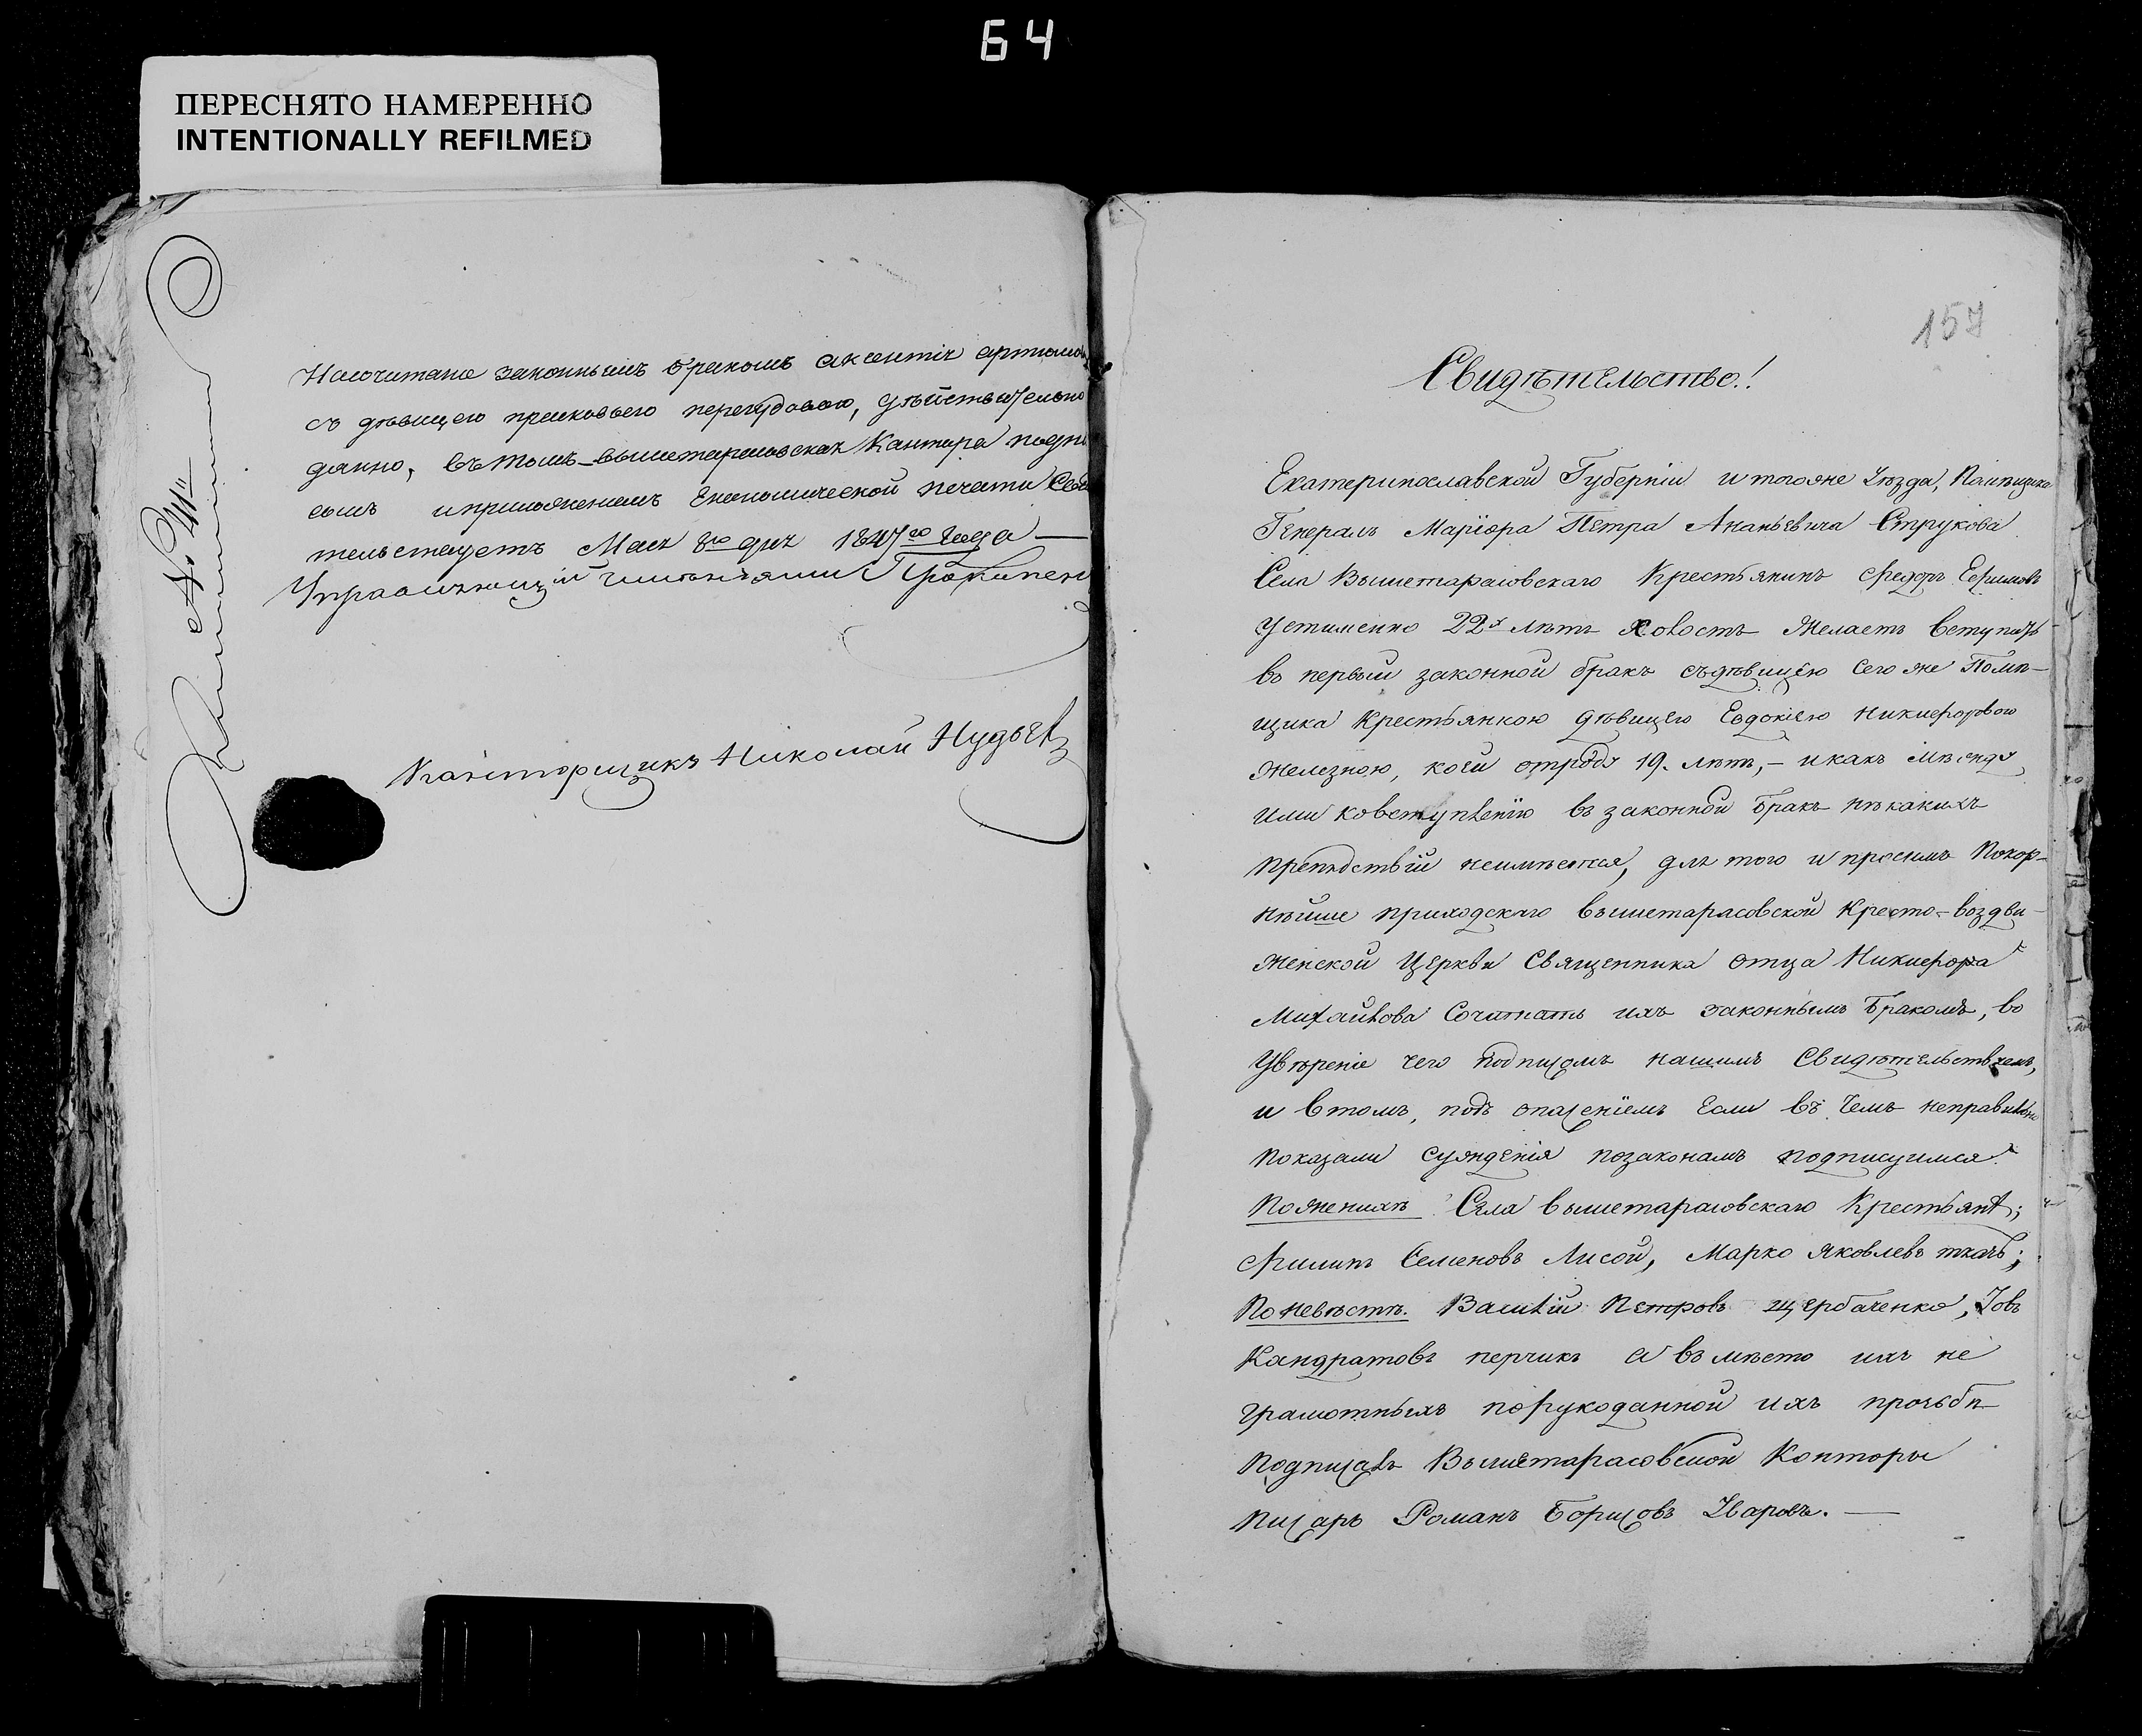 64
ПЕРЕСНЯТО НАМЕРЕННО
INTENTIONALLY REFILMED
№ 41"
На сочитание законнымъ бракомъ
съ девицею, действительно
данно, въ томъ вышетарасовская Кантора подпи
сомъ и приложениемъ Економической печати Свиде
тельствуетъ Мая 8го дня 1847го Года —
Управляющий имениями
Канторщикъ Николай
157
Свидѣтельство!
Екатеринославской Губерніи и того же Уезда, Помѣщика
Генералъ Маріора Петра Ананьевича Струкова
Села Вышетарасовскаго Крестьянинъ Федоръ Ефимовъ
Устименко 22х лѣтъ Холостъ Желаетъ вступить
въ первый законной бракъ съ дѣвицею сего же Помѣ-
щика Крестьянкою дѣвицею Евдокіею Никифоровою
Железною, коей отроду 19. лѣтъ, – и какъ между
ими ко вступленію въ законной бракъ нѣкакихъ
препядствій неимѣется, для того и просимъ Покор-
нѣйше приходскаго вышетарасовской Кресто-воздви-
женской Церкви Священника отца Никифора
Михайлова Сочитать ихъ законнымъ бракомъ, во
Увѣреніе чего подписомъ нашимъ Свидѣтельствуемъ,
и втомъ, подъ опасеніемъ Если въ чемъ неправильно
показали сужденія позаконамъ подписуимся.
По женихѣ Села вышетарасовскаго Крестьянѣ;
Филипъ Семеновъ Лисой, Марко Яковлевъ ткачь;
По невѣстѣ. Василій Петровъ Щербаченко, Іовъ
Кандратовъ перчикъ а въ мѣсто ихъ не
грамотныхъ порукоданной ихъ прозьбѣ
подписалъ Вышетарасовской Конторы
писаръ Романъ Борисовъ Уваровъ. —